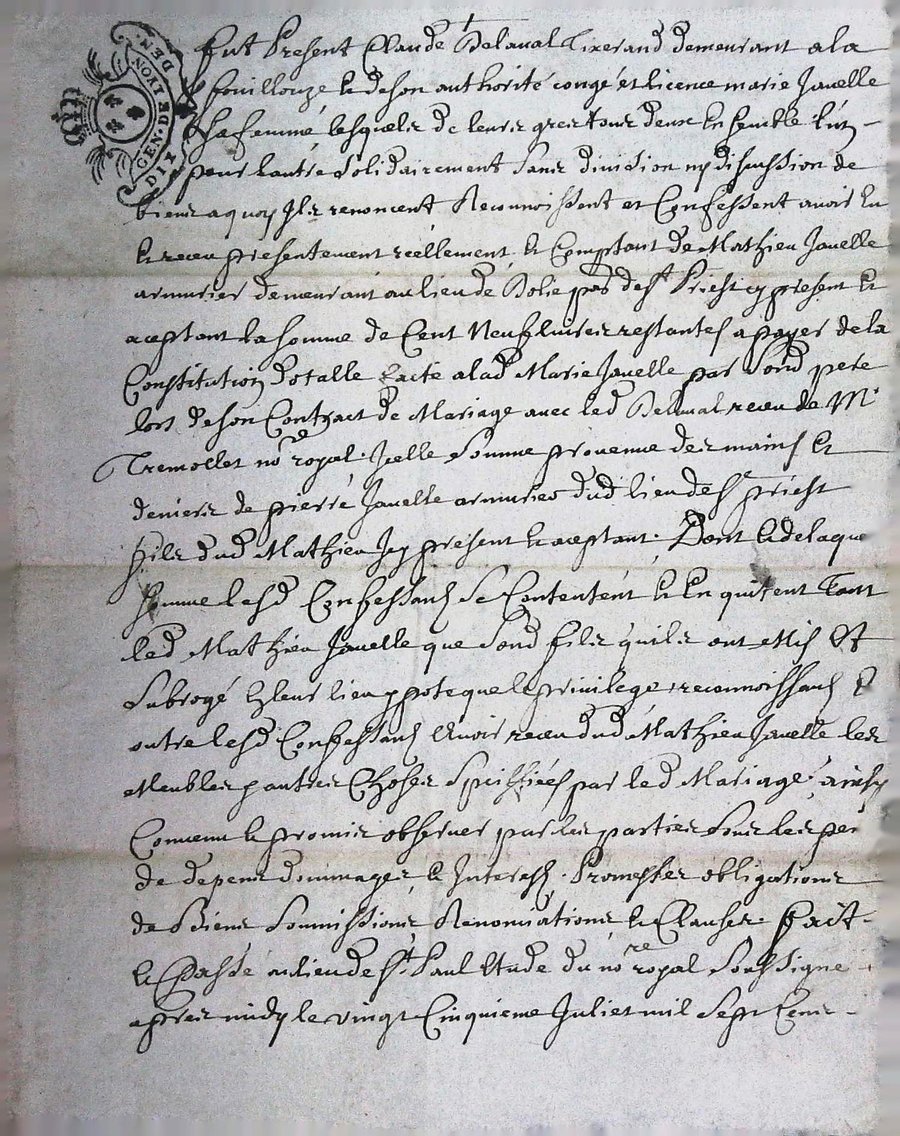 GEN. DE LYON
DIX DEN.
fut Present Claude Delaval Tixerand demeurant a la
fouillouze & de son authorité congé et licence marie Javelle
sa femme lesquels de leurs gres tous deux Ensemble l'un
pour lautre solidairement sans division ny discussion de
biens a quoy Ils renoncent Reconnoissent et Confessent avoir Eu
& receu presentement réellement & Comptant de Mathieu Javelle
armurier demeurant au lieu de pas de st Priest cy present &
aceptant la somme de Cent Neuf livres restantes a payer de la
Constitution dotalle faite a lad Marie Javelle par sond pere
lors de son Contract de Mariage avec led Delaval receu de Mr
Tremollet nore royal. Icelle somme provenue des mains &
deniers de pierre Javelle armurier dud lieu de st priest
fils dud Mathieu Icy présent & aceptant. Dont & de laque
somme lesd Confessants se Contentent & En quitent Tant
led Mathieu Javelle que sond fils qu'ils ont Mis Et
subrogé En leur lieu ypoteque & privilege reconnoissants
outre lesd Confessants Avoir receu dud Mathieu Javelle les
Meubles & autres Choses speciffiées par led Mariage. ainsy
Convenu & promis observer par les parties sous les pei
de depens dommages & Interests. Promesses obligations
de Biens soumissions Renonciations & Clauses. fait
& Passé au lieu de st Paul Etude du nore royal soussigne
apres midy le vingt Cinquieme Juliet mil sept Cens